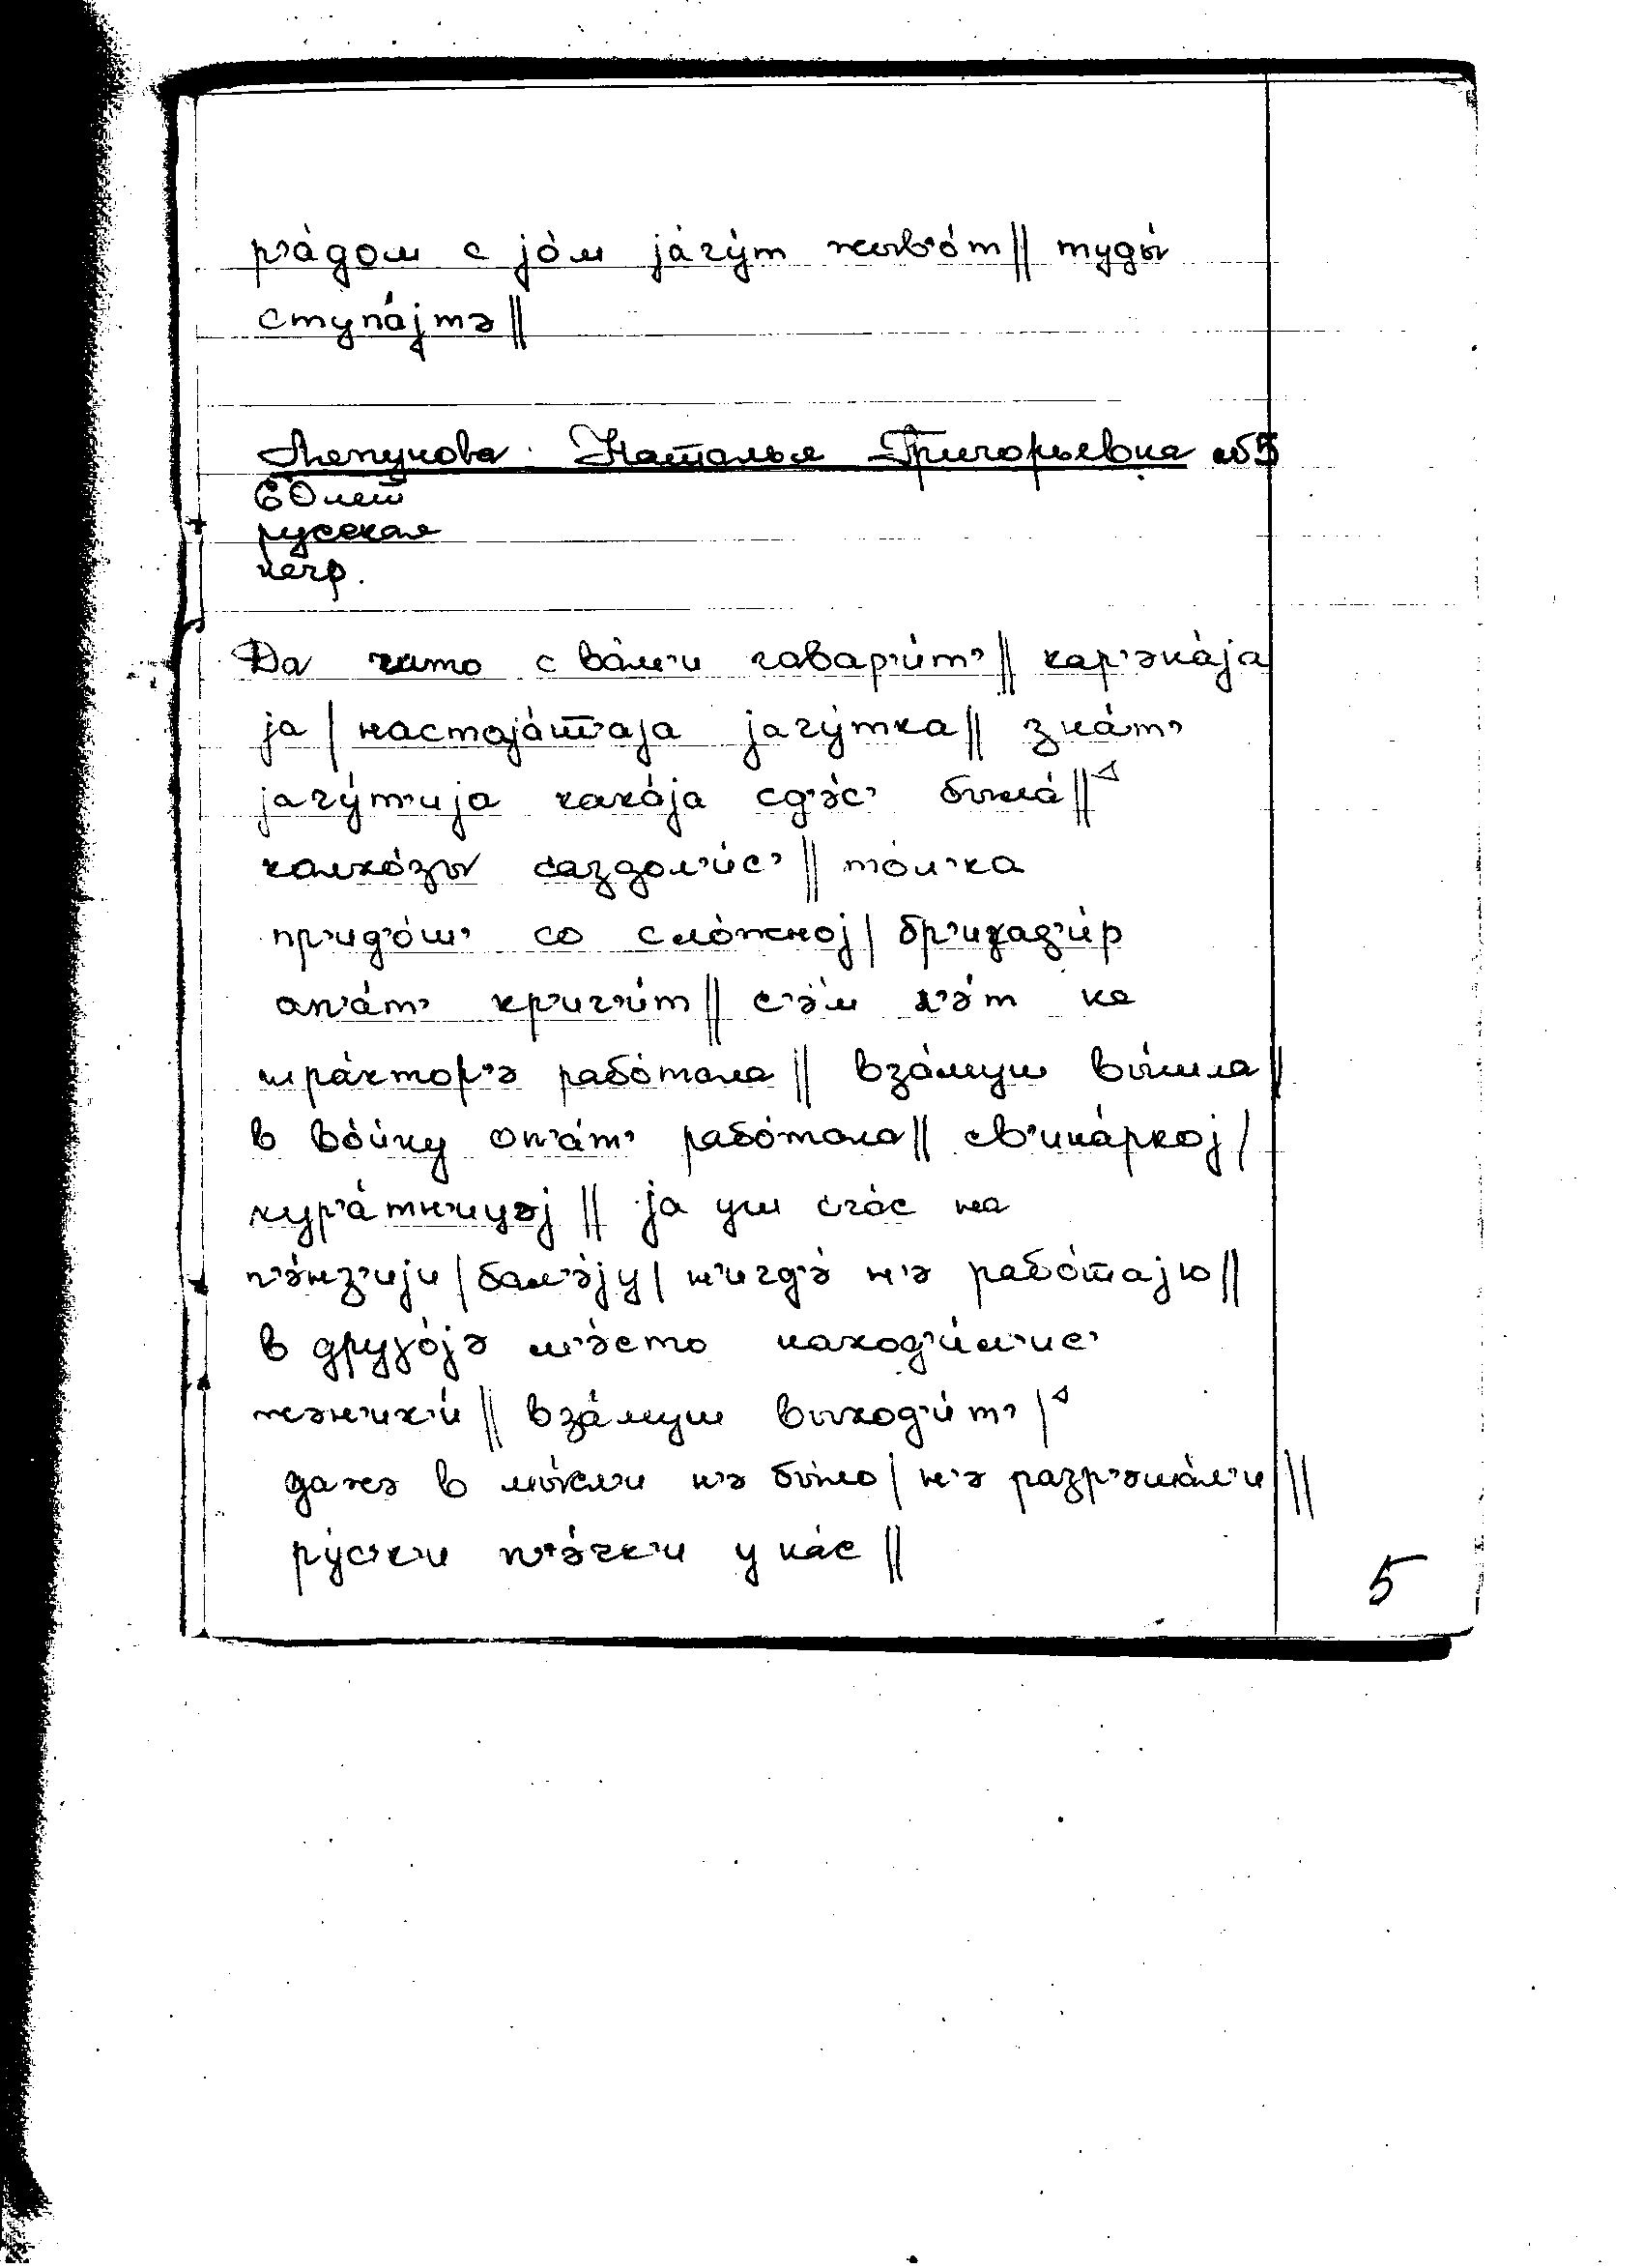 р'а́дом с jо́м jагу́т жыв'о́т || туды́
ступа́jтэ ||
Наталья Григорьевна №5
60 лет
русская
негр.
Да што с ва́м'и гавар'и́т' || кар'эна́jа
jа | настаjа́шаjа jагу́тка || зна́т'
jагу́т'иjа кака́jа сд'э́с' была́ ||
калхо́зы саздал'и́с' || то́л'ка
пр'ид'о́ш' со сло́жноj | бр'иγад'и́р
ап'а́т' кр'ич'и́т || с'э́м л'э́т на
тра́ктор'э рабо́тала || вза́муш вы́шла ||
в во́йну оп'а́т' рабо́тала || св'ина́ркоj |
кур'а́тн'ицэj || jа уш счас на
п'э́нз'иjи | бал'э́jу | н'игд'э́ н'э рабо́таjю ||
в друγо́jэ м'э́сто наход'и́л'ис'
жэн'их'и́ || вза́муш выход'и́т' |
дажэ в мы́сл'и н'э бы́ло | н'э разр'эша́л'и ||
ру́ск'и п'э́чк'и у на́с ||
5